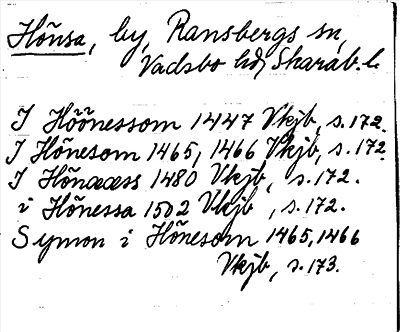 Hönsa, by, Ransbergs sn,
Vadsbo hd, Skarab. l.
I Höönessom 1447 Vkjb, s. 172.
I Hönesom 1465, 1466 Vkjb, s. 172.
I Hönææss 1480 Vkjb, s. 172.
i Hönessa 1502 Vkjb, s. 172.
Symon i Hönesom 1465, 1466
Vkjb, s. 173.